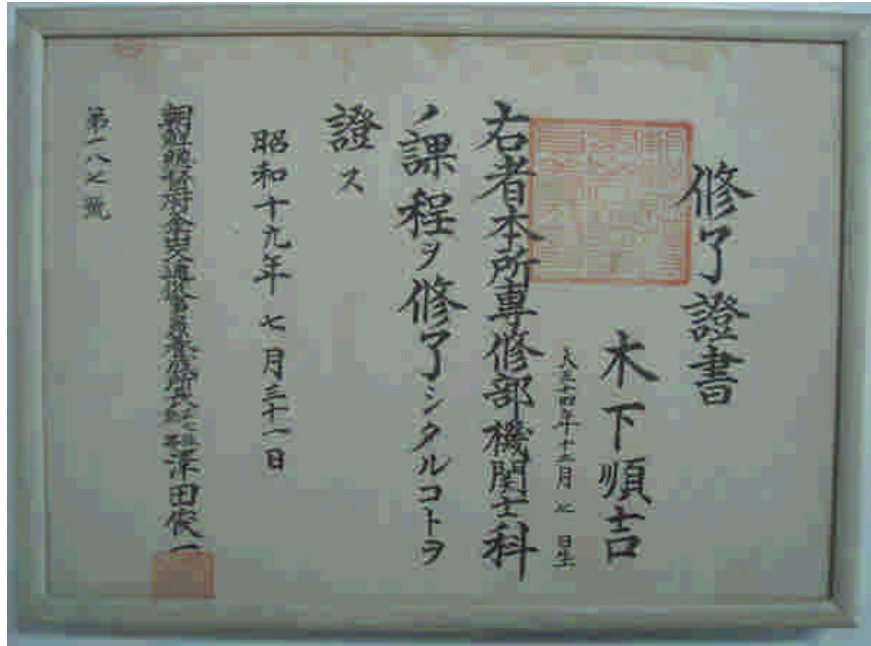 修了證書
木下順吉
大正十四年十二月七日生
右者本所専修部機関士科
ノ課程ヲ修了シタルコトヲ
證ス
昭和十九年七月三十一日
朝鮮総督府釜山交通従事員養成所長 澤田俊一
第一八七號